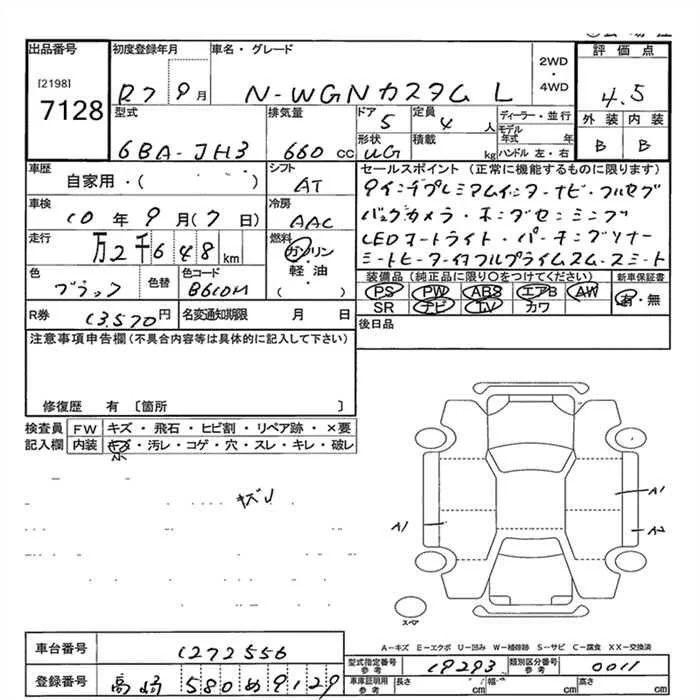 出品番号
[2198]
7128
初度登録年月
R7 9月
車名・グレード
N-WGNカスタム L
2WD
・
4WD
評価点
4.5
外装 内装
B B
型式
6BA-JH3
排気量
660 CC
ドア
5
形状
WG
定員
4 人
積載
kg
ディーラー・並行
モデル年式 年
ハンドル 左・右
車歴
自家用・( )
シフト
AT
車検
10年9月(7日)
冷房
AAC
走行
万2千648km
燃料
ガソリン
軽・油
・( )
色
ブラック
色替
色コード
B610M
セールスポイント (正常に機能するものに限ります)
8インチプレミアムインターナビ・フルセグ
バックカメラ・ホンダセンシング
LEDオートライト・パーキングソナー
シートヒーター付フルプライムスム・スミート
装備品 (純正品に限り○をつけてください)
PS PW ABS エアB AW
SR ナビ TV カワ
新車保証書
有・無
R券
13,570円
名変通知期限 月 日
後日品
注意事項申告欄(不具合内容等は具体的に記入して下さい)
修復歴 有 〔箇所 〕
検査員記入欄
FW キズ・飛石・ヒビ割・リペア跡・×要
内装 キズ・汚レ・コゲ・穴・スレ・キレ・破レ
小
キズ
A1
A1
A2
スペア
A-キズ E-エクボ U-凹み W-補修跡 S-サビ C-腐食 XX-交換済
車台番号
1272556
登録番号
高崎 580 め 9129
型式指定番号
参考
19293
類別区分番号
参考
0011
車庫証明用
参考
長さ cm 幅 cm 高さ cm